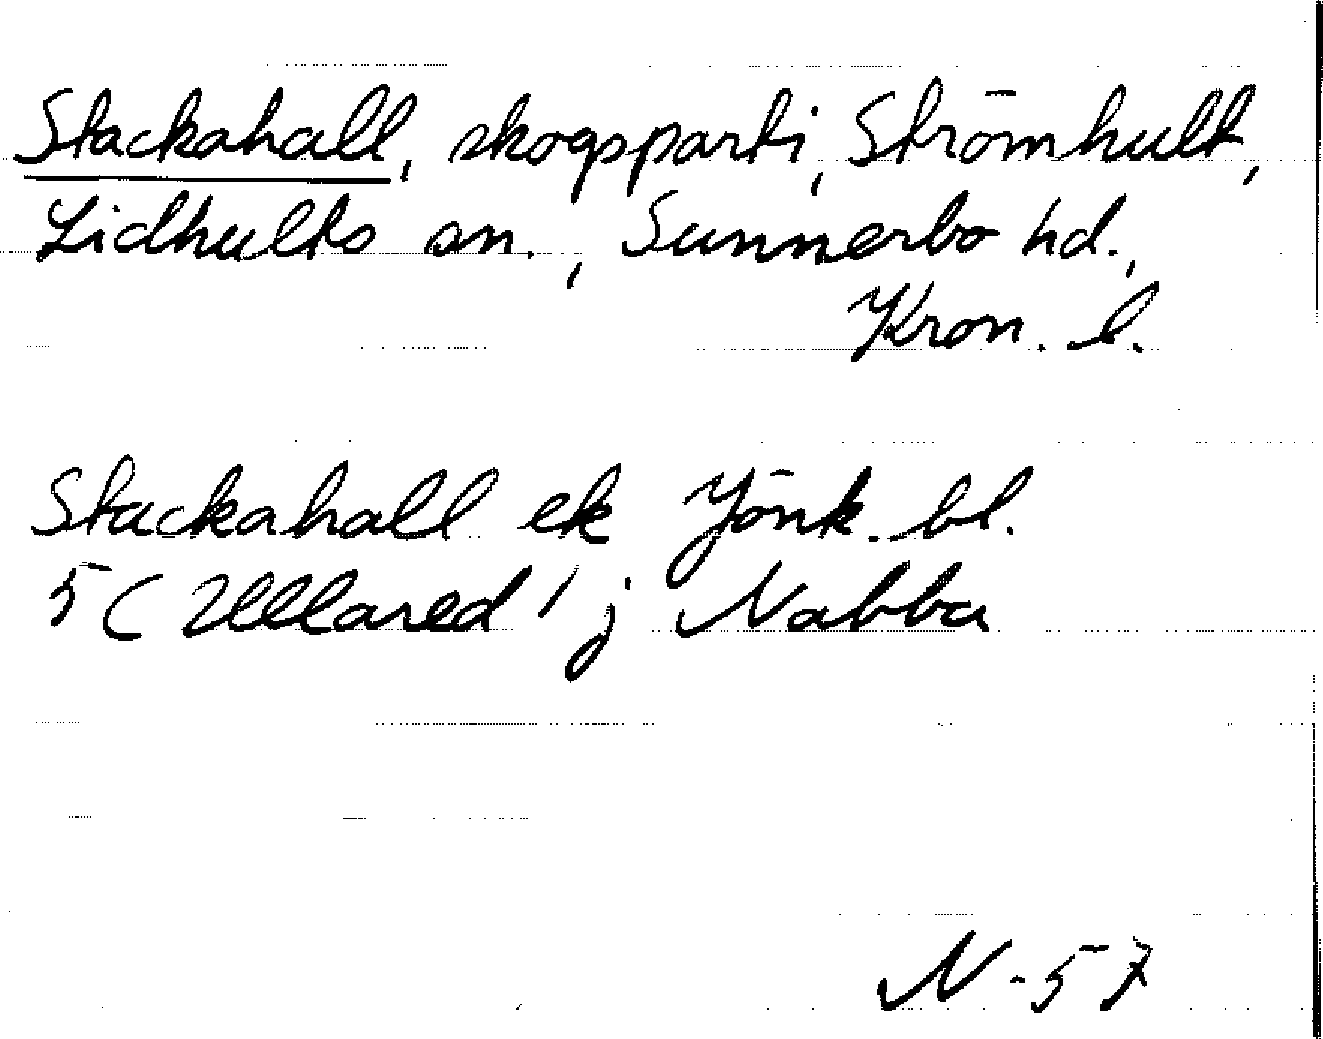 Stackahall, skogsparti, Strömhult,
Lidhults sn., Sunnerbo hd.,
Kron. l.
Stackahall ek Jönk. bl.
5 (Ullared); Nabba
N-57